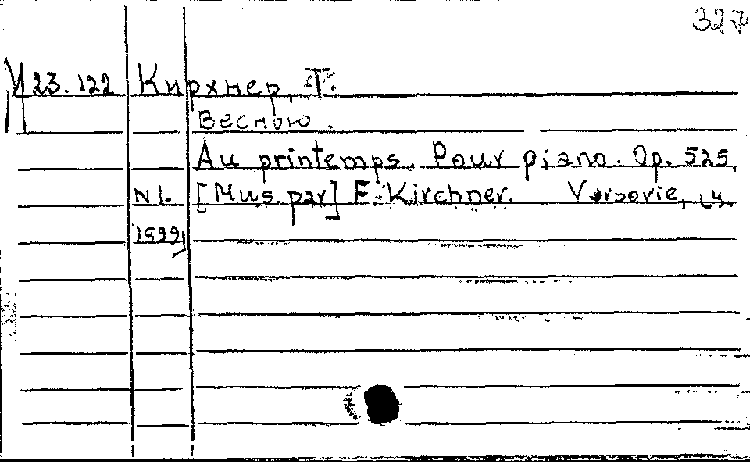 327
23.122 Кирхнер, Т.
Весною.
Au printemps. Pour piano. Op. 525,
N 1. [Mus. par] F. Kirchner. Varsovie,